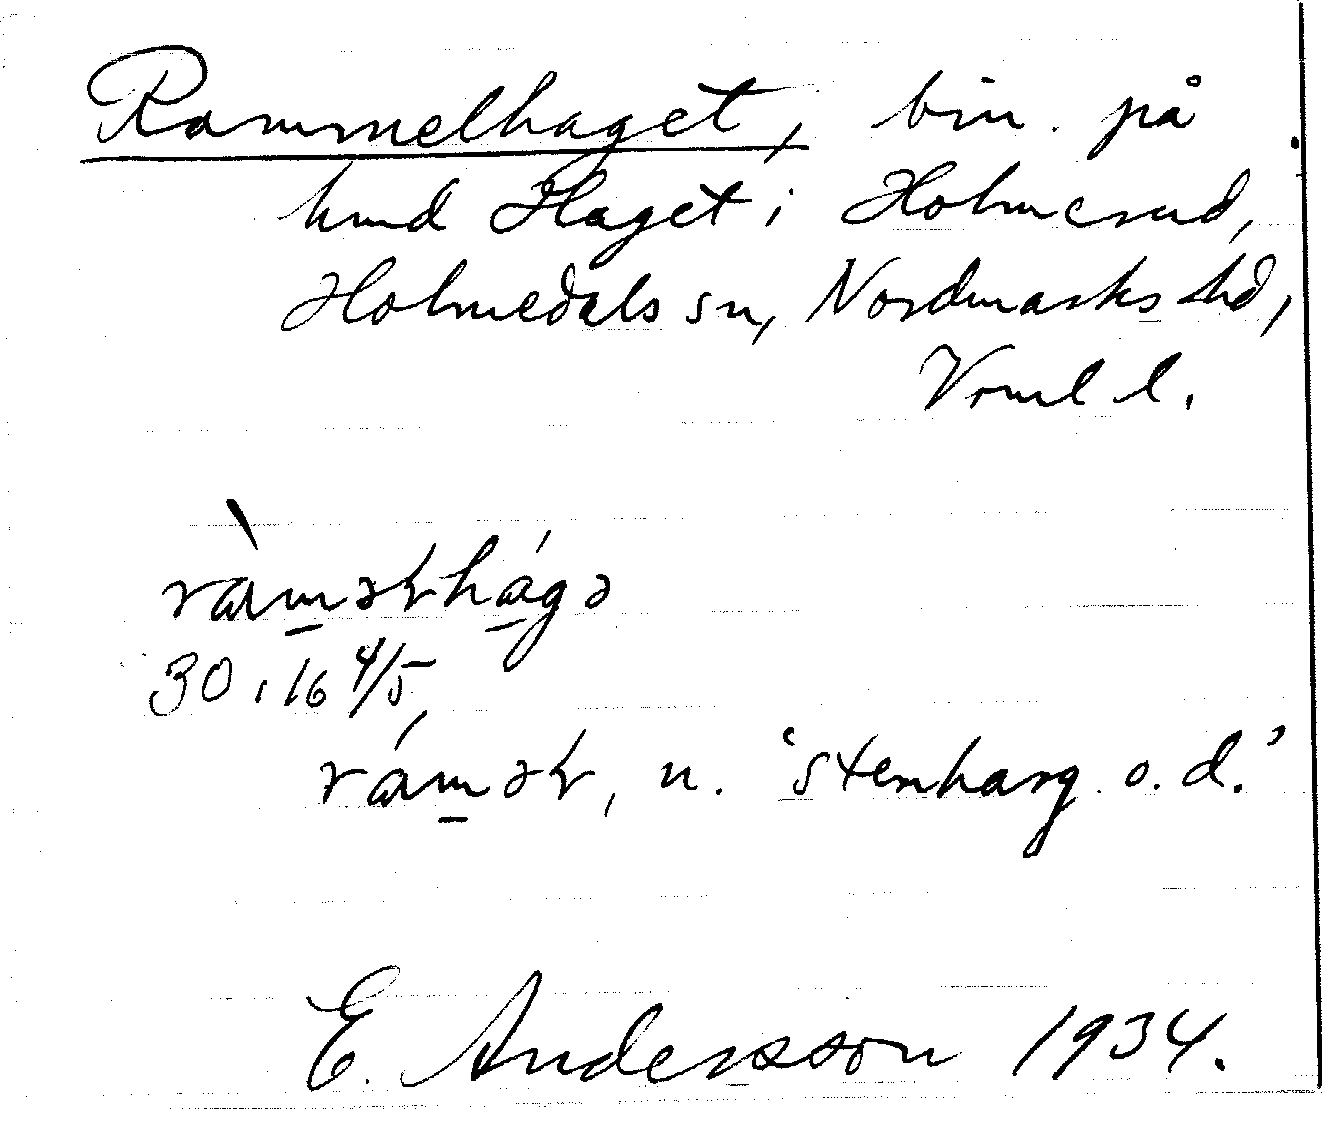 Rammelhaget, bin. på
hmd Haget i Holmerud,
Holmedals sn, Nordmarks hd,
Vrml l.
ràməɽhágə
30.16 4/5,
ráməɽ, n. 'stenharg o.d.'
E. Andersson 1934.